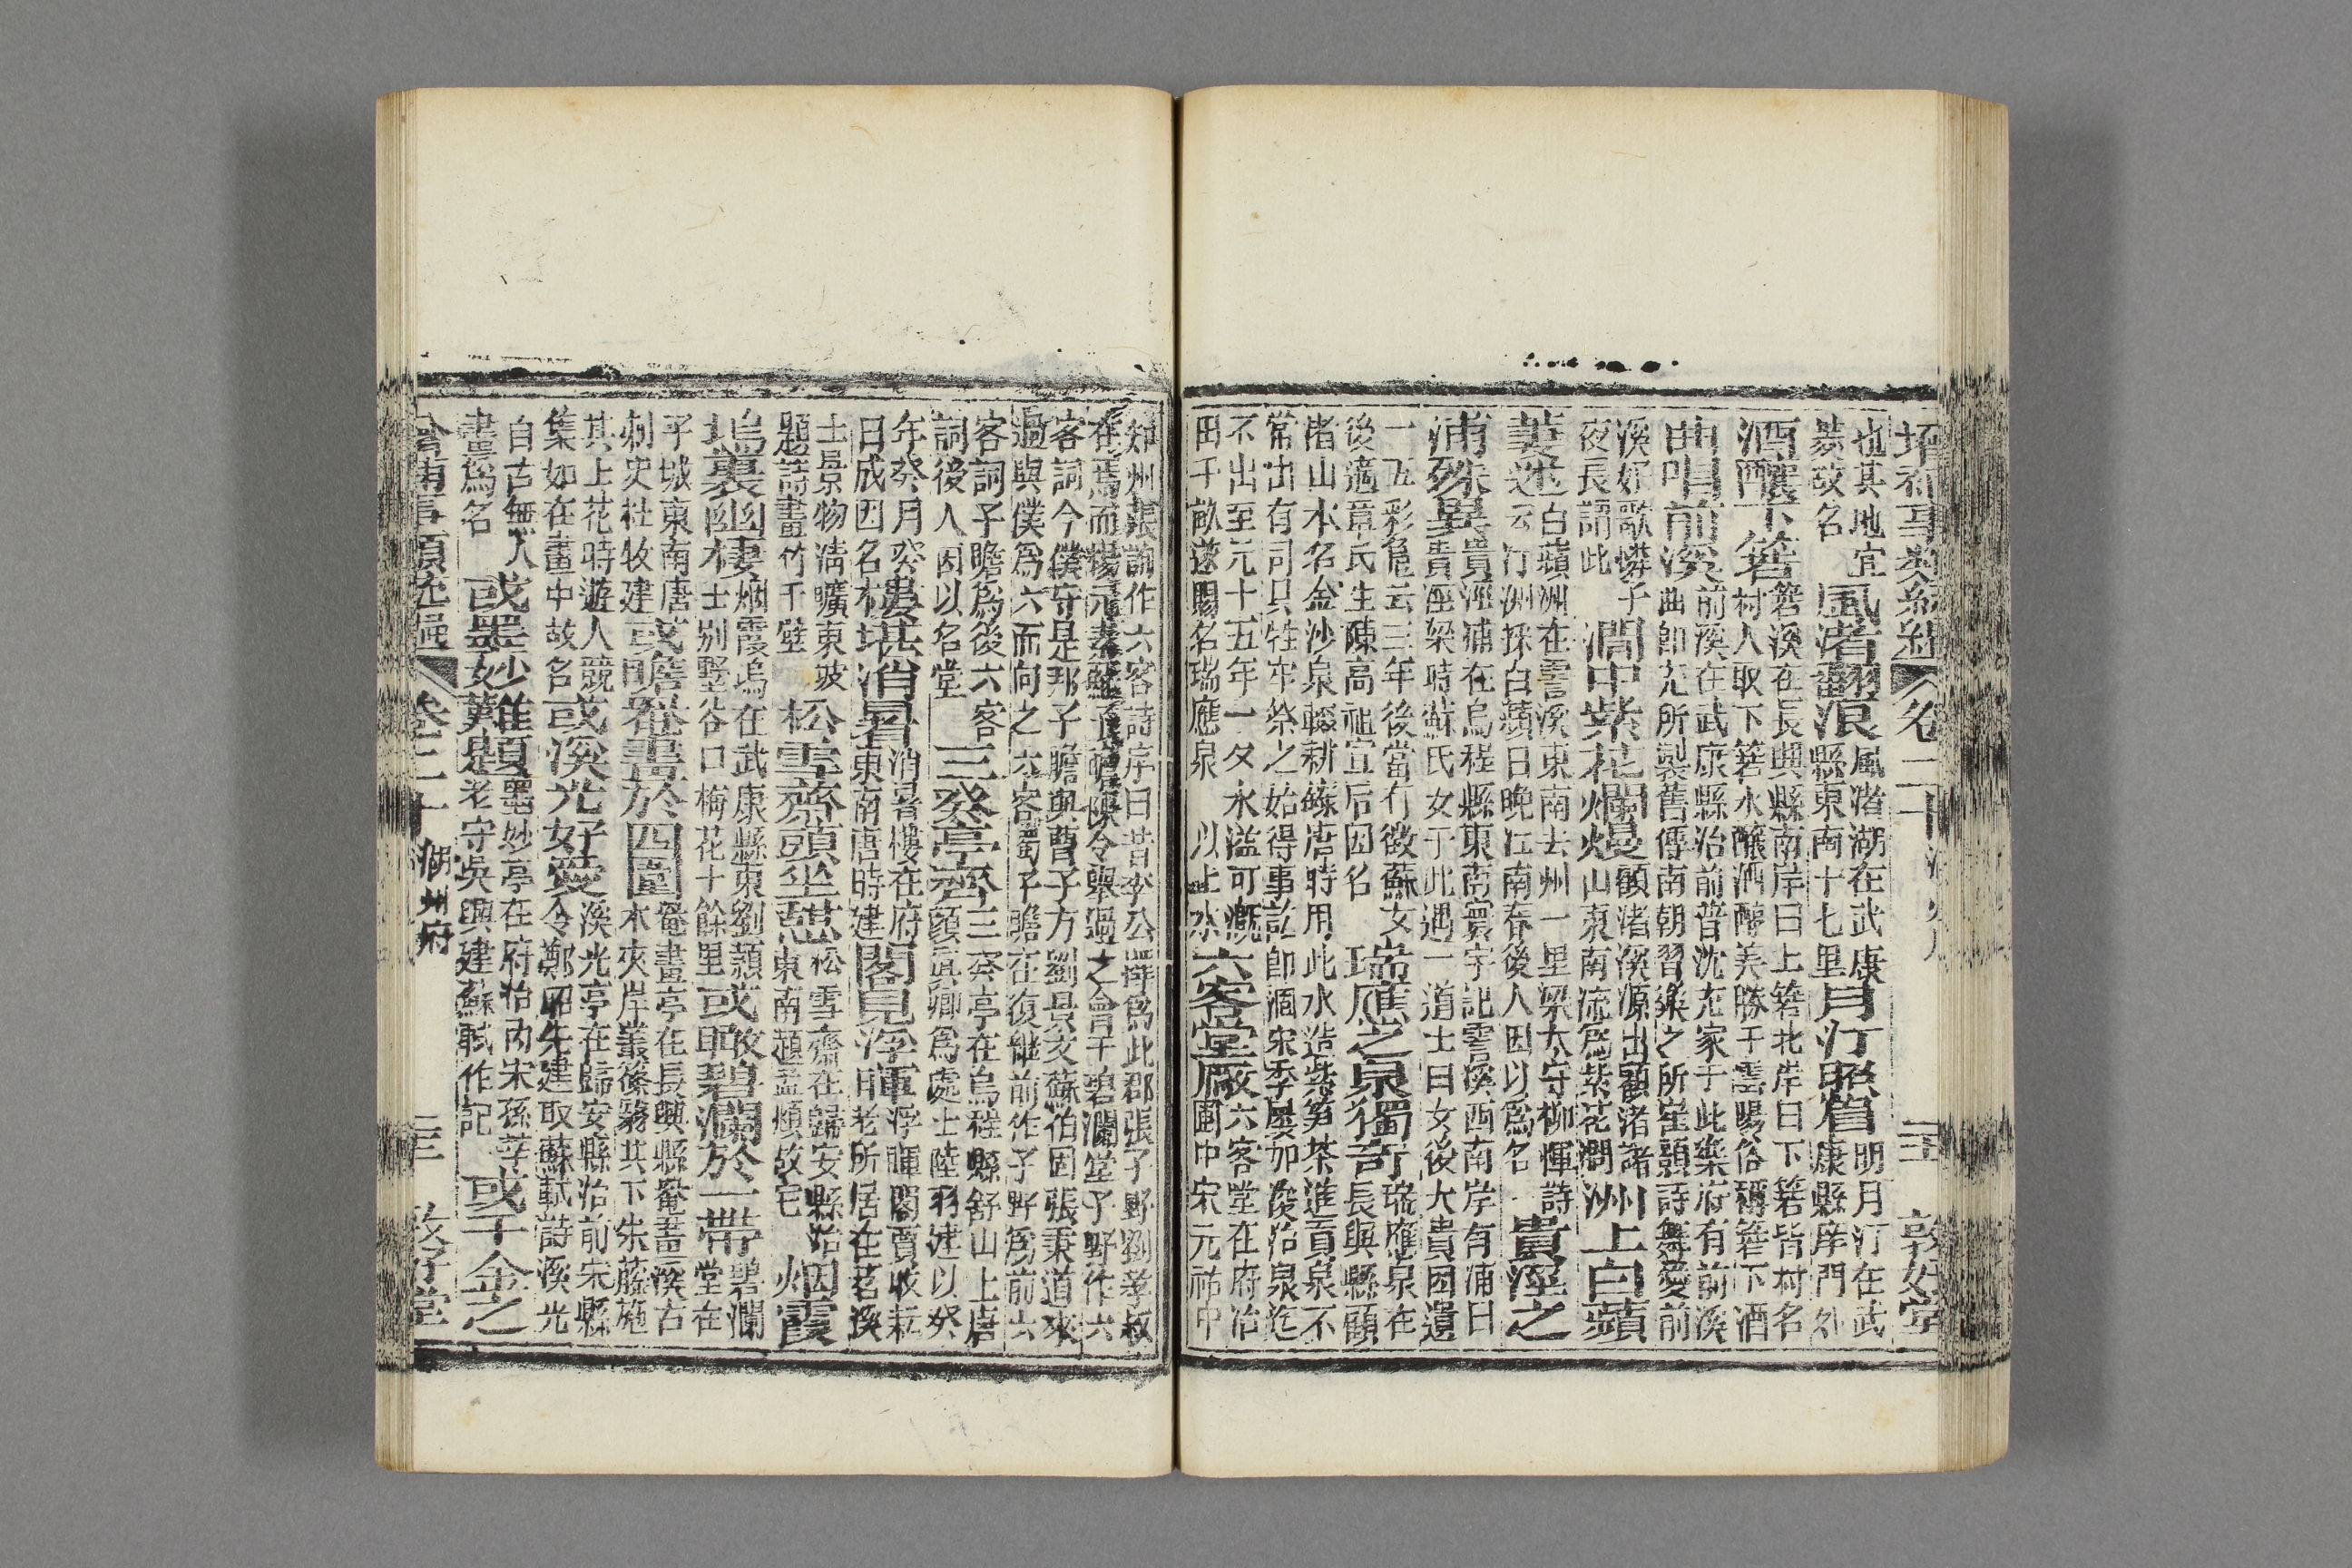 也其地宜
菱故名
風渚翻浪
風渚湖在武康
縣東南十七里
月汀照眉
明月汀在武
康縣庠門外
酒釀下箬
箬溪在長興縣南岸曰上箬北岸曰下箬皆村名
村人取下箬水釀酒醇美勝于雲陽俗稱箬下酒
曲唱前溪
前溪在武康縣治前昔沈充家于此樂府有前溪
曲即充所製舊傳南朝習樂之所崔顥詩舞愛前
溪妤歌憐子
夜長謂此
澗中紫花爛熳
顧渚溪源出顧渚諸
山東南流爲紫花澗
洲上白蘋
萋迷
白蘋洲在霅溪東南去州一里梁太守柳惲詩
云汀洲採白蘋日晚江南春後人因以爲名
貴涇之
浦殊異
貴涇浦在烏程縣東南寰宇記霅溪西南岸有浦曰
貴涇梁時蘇氏女于此遇一道士曰女後大貴因遺
一五彩龜云三年後當有徵蘇女
後適章氏生陳高祖宣后因名
瑞應之泉獨奇
瑞應泉在
長興縣顧
渚山本名金沙泉輟耕錄唐時用此水造紫笋茶進貢泉不
常出有司具牲牢祭之始得事訖即涸宋季屢加浚治泉迄
不出至元十五年一夕水溢可漑
田千畝遂賜名瑞應泉 以上水
六客堂厰
六客堂在府治
圃中宋元祐中
知州張詢作六客詩序曰昔李公擇爲此郡張子野劉孝叔
在焉而楊元素蘇子瞻陳令舉過之會于碧瀾堂子野作六
客詞今僕守是邦子瞻與曹子方劉景文蘇伯固張秉道來
過與僕爲六而向之六客獨子瞻在復繼前作子野爲前六
客詞子瞻爲後六客
詞後人因以名堂
三癸亭齊
三癸亭在烏程縣舒山上唐
顔眞卿爲處士陸羽建以癸
年癸月癸
日成因名
樓堪消暑
消暑樓在府
東南唐時建
閣見浮暉
浮暉閣賈收耘
老所居在苕溪
上景物淸曠東坡
題詩畫竹于壁
松雪齋頭坐憇
松雪齋在歸安縣治因
東南趙孟頫故宅
烟霞
塢裏幽棲
烟霞塢在武康縣東劉頴
士别墅谷口梅花十餘里
或瞰碧瀾於一帶
碧瀾
堂在
子城東南唐
刺史杜牧建
或瞻罨畫於四圍
罨畫亭在長興縣罨畫溪右
木夾岸叢篠翳其下朱藤施
其上花時遊人競
集如在畫中故名
或溪光好愛
溪光亭在歸安縣治前宋縣
令鄭昭先建取蘇軾詩溪光
自古無人
畫爲名
或墨妙難題
墨妙亭在府治內宋孫莘
老守吳興建蘇軾作記
或千金之
卷二十
湖州府
敦好堂